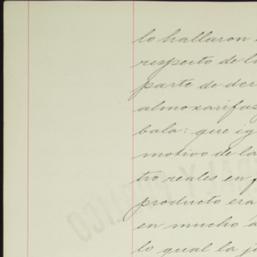 lo hallaron
respecto de l
parte de der
almoxarifas
bala: que ig
motivo de la
tro reales en
producto era
en mucho
lo qual la